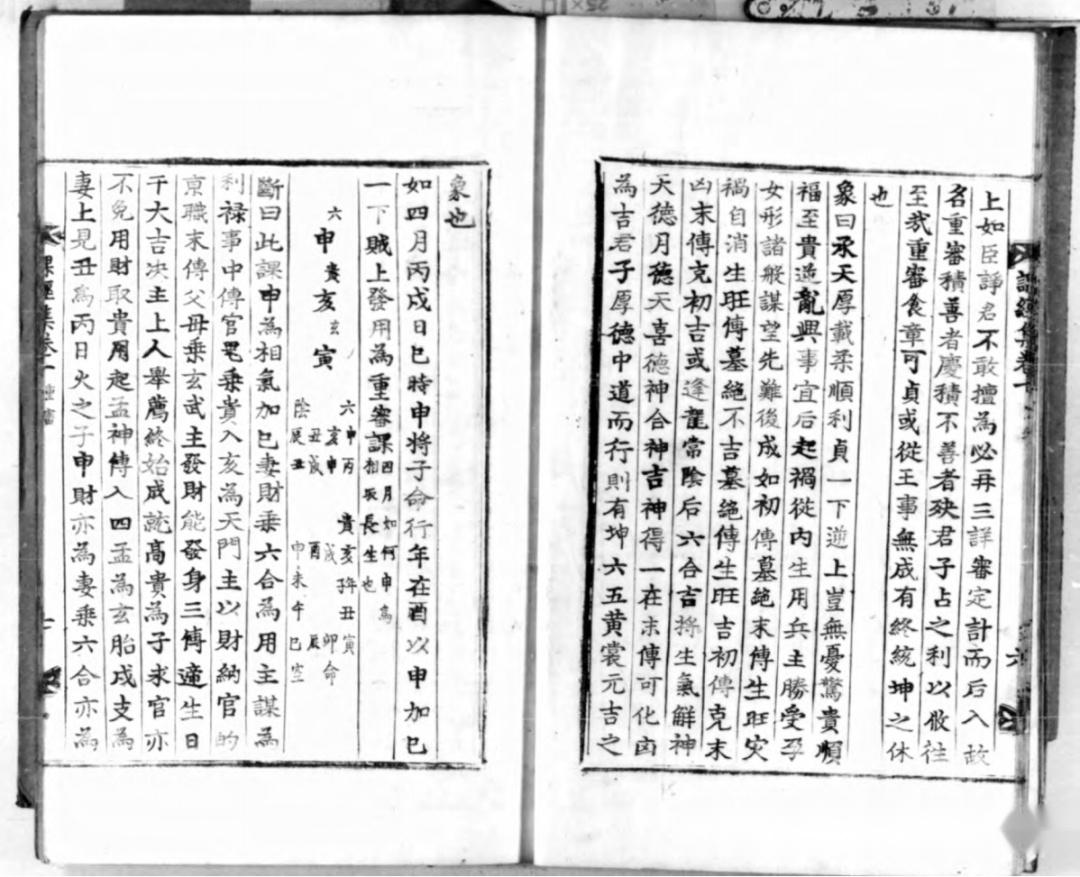 上如臣諍君不敢擅為必再三詳審定計而后入故
名重審積善者慶積不善者殃君子占之利以攸往
至哉重審含章可貞或從王事無成有終統坤之休
也
象曰承天厚載柔順利貞一下逆上豈無憂驚貴順
福至貴逆亂興事宜后起禍從內生用兵主勝受孕
女形諸般謀望先難後成如初傳墓絕末傳生旺災
禍自消生旺傳墓絕不吉墓絕傳生旺吉初傳克末
凶末傳克初吉或逢龍常陰后六合吉將生氣解神
天德月德天喜德神合神吉神得一在末傳可化凶
為吉君子厚德中道而行則有坤六五黃裳元吉之
課經集卷一
六
象也
如四月丙戌日巳時申將子命行年在酉以申加巳
一下賊上發用為重審課四月如何申為
相氣長生也
六 申
貴 亥
玄 寅
六 申丙
亥申
丑戌
陰 辰丑
貴 亥子丑寅
戌 卯命
酉 辰
申未午巳空
斷曰此課申為相氣加巳妻財乘六合為用主謀為
利祿事中傳官鬼乘貴入亥為天門主以財納官的
京職末傳父母乘玄武主發財能發身三傳遞生日
干大吉決主上人舉薦終始成就高貴為子求官亦
不免用財取貴用起孟神傳入四孟為玄胎戌支為
妻上見丑為丙日火之子申財亦為妻乘六合亦為
課經集卷一
七